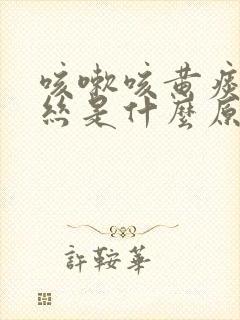 咳嗽咳黄痰
絲是什麼原
許鞍華